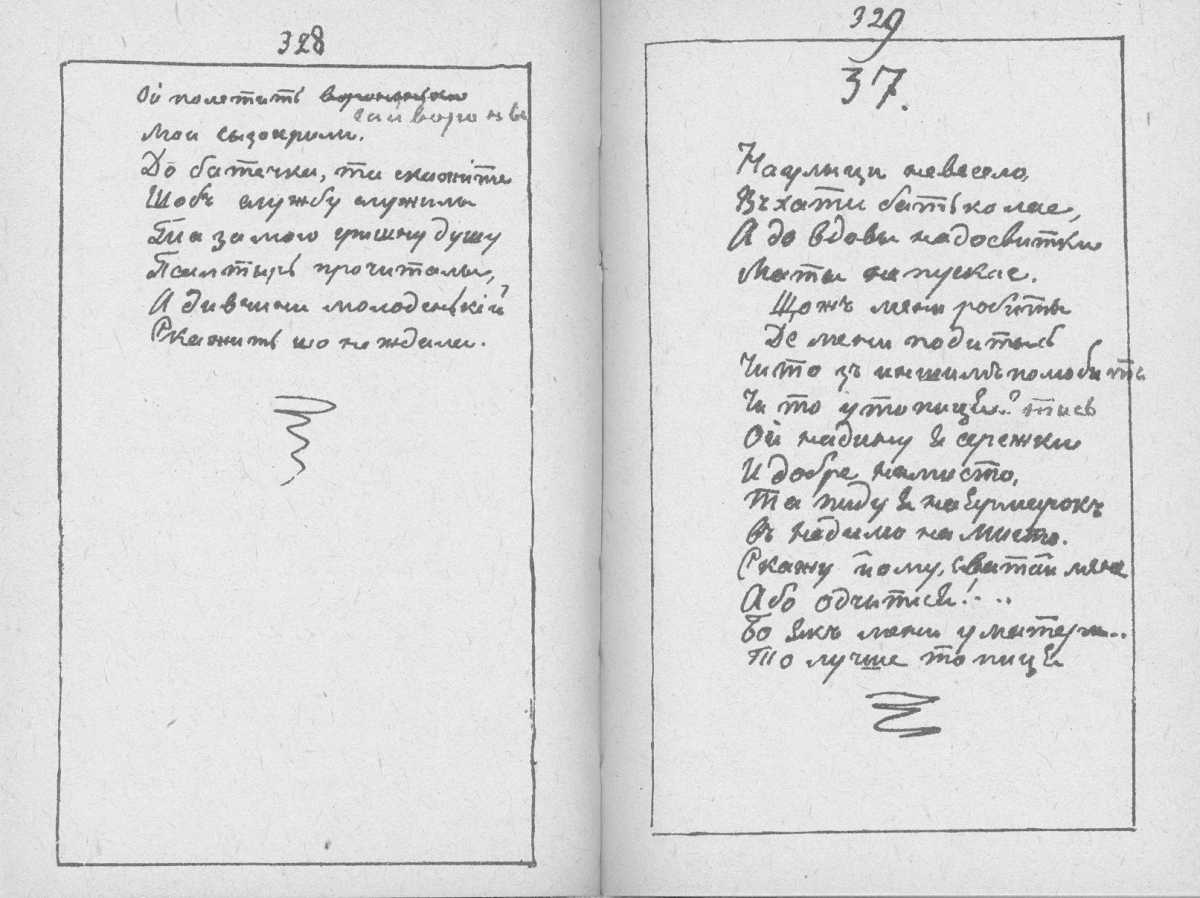 328
Ой полетить вороненько
гайвороны
Мои сызокрили.
До батечка, та скажите
Щобъ службу служили
Та за мою гришну душу
Псалтырь прочитали,
А дивчини молоденькій
Скажить що не ждали.
329
37.
На улыци невесело,
Въ хати батько лае,
А до вдовы на досвитки
Маты не пускае.
Щожъ мени робиты
Де мени подитысь
Чи то зъ иншимъ полюбиты
Чи то утопиця? тысь
Ой надину я сережки
И добре намисто,
Та пиду я на ярмарокъ
Въ недилю на мисто.
Скажу йому, сватай мене
Або одчипися!...
Бо якъ мени у матери..
То лучше топиця